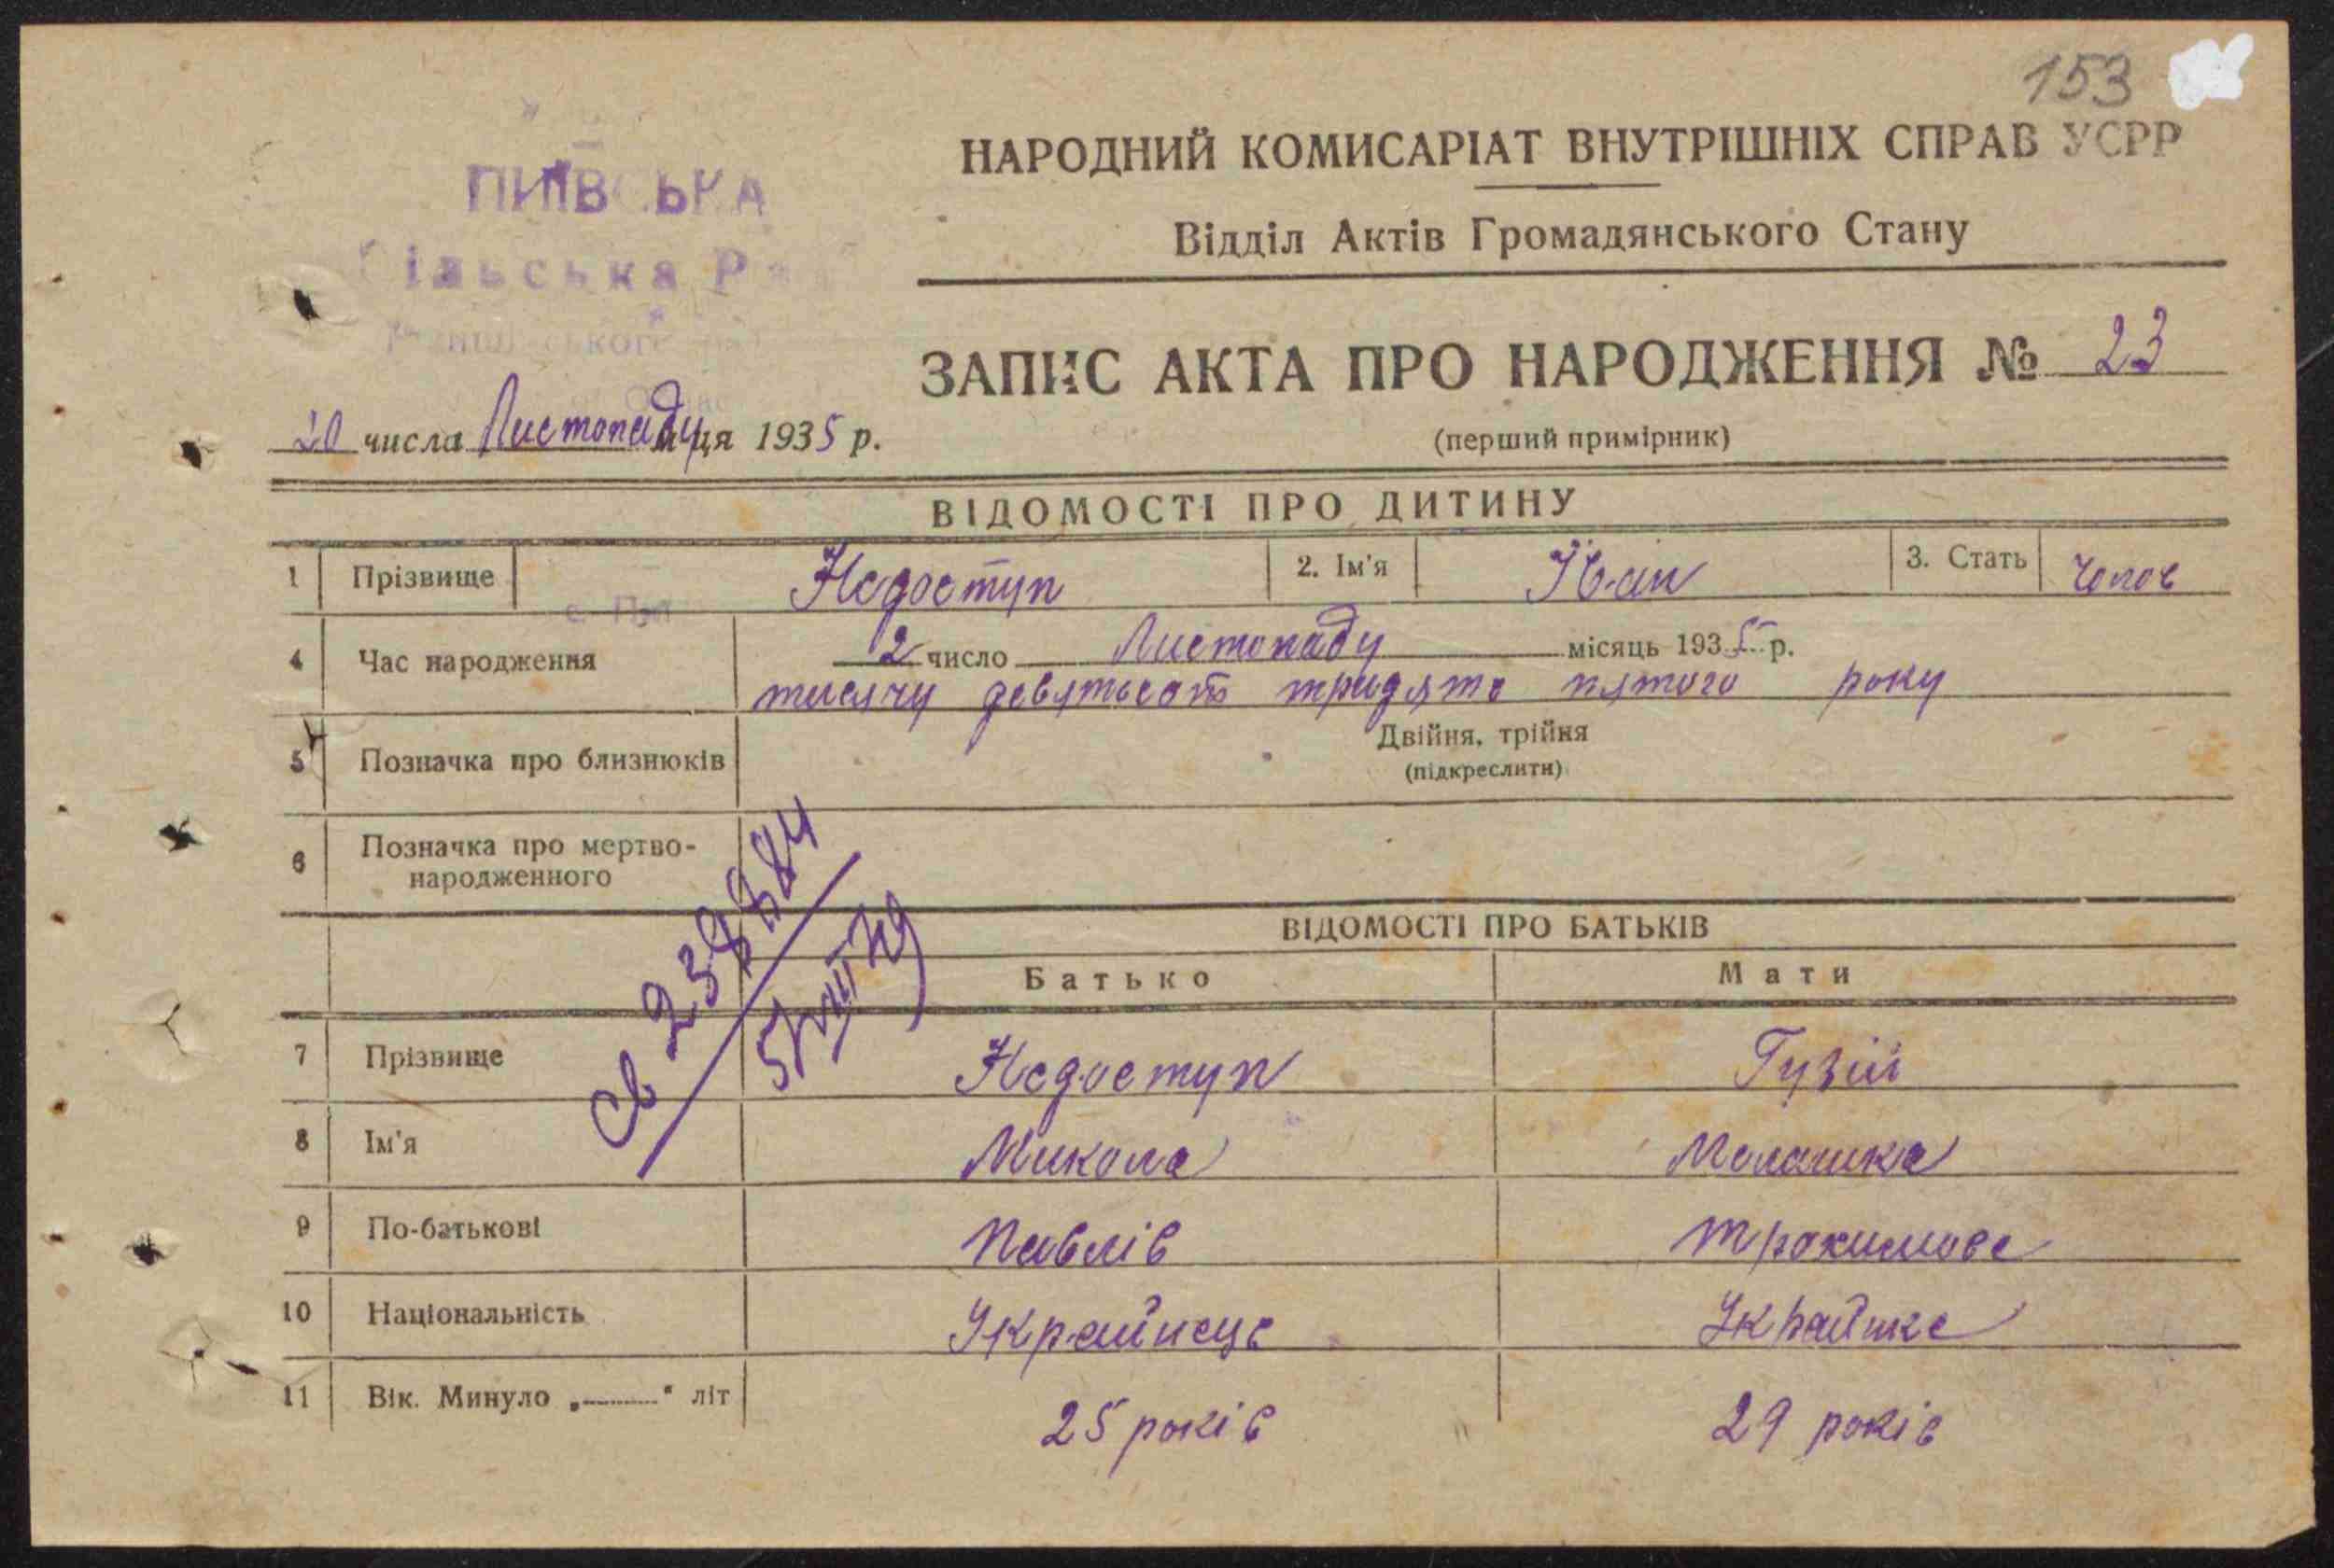 153
НАРОДНИЙ КОМИСАРІАТ ВНУТРІШНІХ СПРАВ УСРР
Відділ Актів Громадянського Стану
ЗАПИС АКТА ПРО НАРОДЖЕННЯ № 23
20 числа Листопаду м-ця 1935 р.
(перший примірник)
ВІДОМОСТІ ПРО ДИТИНУ
1 Прізвище Недоступ 2. Ім'я Іван 3. Стать Чолов
4 Час народження 2 число Листопаду місяць 1935 р.
тисячу девятьсот тридцять пятого року
5 Позначка про близнюків Двійня, трійня
(підкреслити)
6 Позначка про мертво-
народженного
ВІДОМОСТІ ПРО БАТЬКІВ
Батько Мати
7 Прізвище Недоступ Гузій
8 Ім'я Микола Малашка
9 По-батькові Павлів Трохимова
10 Національність Українець Українка
11 Вік. Минуло „ “ літ 25 років 29 років